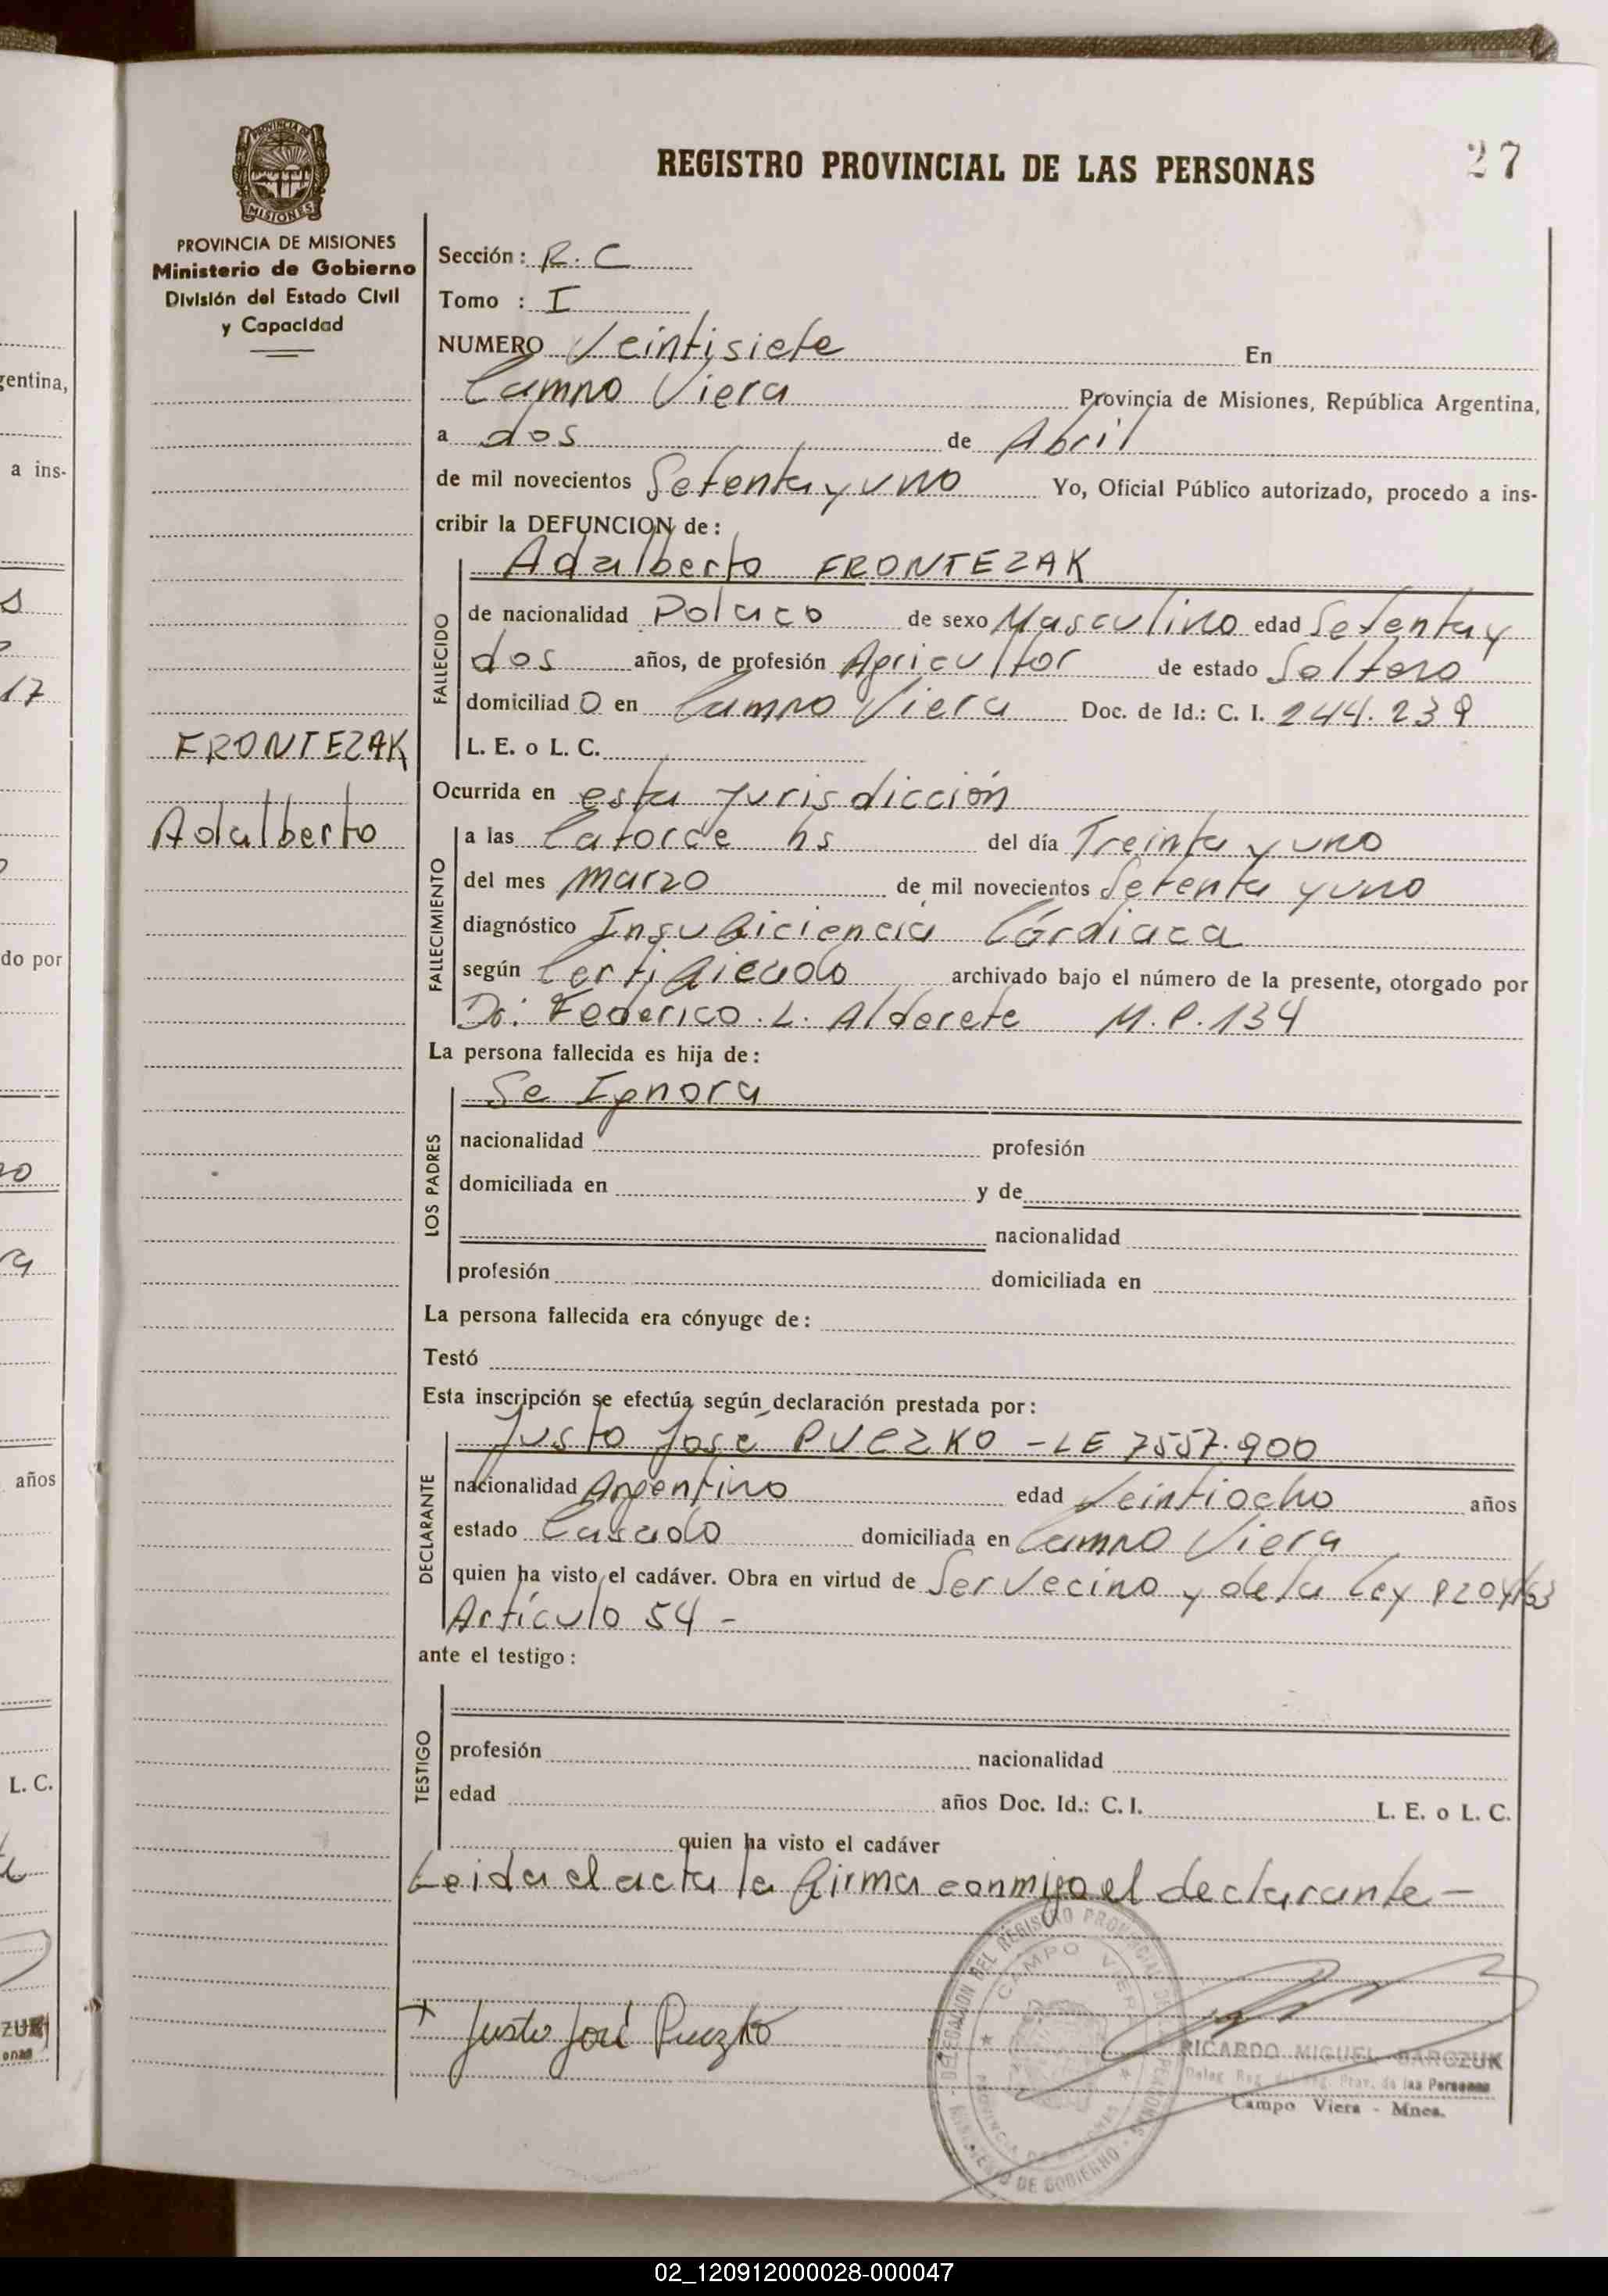 REGISTRO PROVINCIAL DE LAS PERSONAS
27
PROVINCIA DE
MISIONES
PROVINCIA DE MISIONES
Ministerio de Gobierno
División del Estado Civil
y Capacidad
FRONTEZAK
Adalberto
Sección: R. C
Tomo : I
NUMERO Veintisiete En
Campo Viera Provincia de Misiones, República Argentina,
a dos de Abril
de mil novecientos Setenta y uno Yo, Oficial Público autorizado, procedo a ins-
cribir la DEFUNCION de:
FALLECIDO
Adalberto FRONTEZAK
de nacionalidad Polaco de sexo Masculino edad Setenta y
dos años, de profesión Agricultor de estado Soltero
domiciliad O en Campo Viera Doc. de Id.: C. I. 244.239
L. E. o L. C.
Ocurrida en esta Jurisdicción
FALLECIMIENTO
a las Catorce hs del día Treinta y uno
del mes marzo de mil novecientos Setenta y uno
diagnóstico Insuficiencia Córdiaca
según Certificado archivado bajo el número de la presente, otorgado por
Dr: Federico. L. Alderete M. P. 134
La persona fallecida es hija de:
LOS PADRES
Se Ignora
nacionalidad profesión
domiciliada en y de
nacionalidad
profesión domiciliada en
La persona fallecida era cónyuge de:
Testó
Esta inscripción se efectúa según declaración prestada por:
DECLARANTE
Justo José PUCZKO - LE 7557.900
nacionalidad Argentino edad Veintiocho años
estado Casado domiciliada en Campo Viera
quien ha visto el cadáver. Obra en virtud de Ser Vecino y de la Ley 8204/63
Artículo 54 -
ante el testigo:
TESTIGO
profesión nacionalidad
edad años Doc. Id.: C. I. L. E. o L. C.
quien ha visto el cadáver
Leida el acta la firma conmigo el declarante -
Justo José Puczko
DELEGACION DEL REGISTRO PROVINCIAL DE LAS PERSONAS
CAMPO VIERA
PROVINCIA DE MISIONES
MINISTERIO DE GOBIERNO
RICARDO MIGUEL BARCZUK
Deleg. Reg. del Reg. Prov. de las Personas
Campo Viera - Mnes.
gentina,
a ins-
17
do por
años
L. C.
02_120912000028-000047